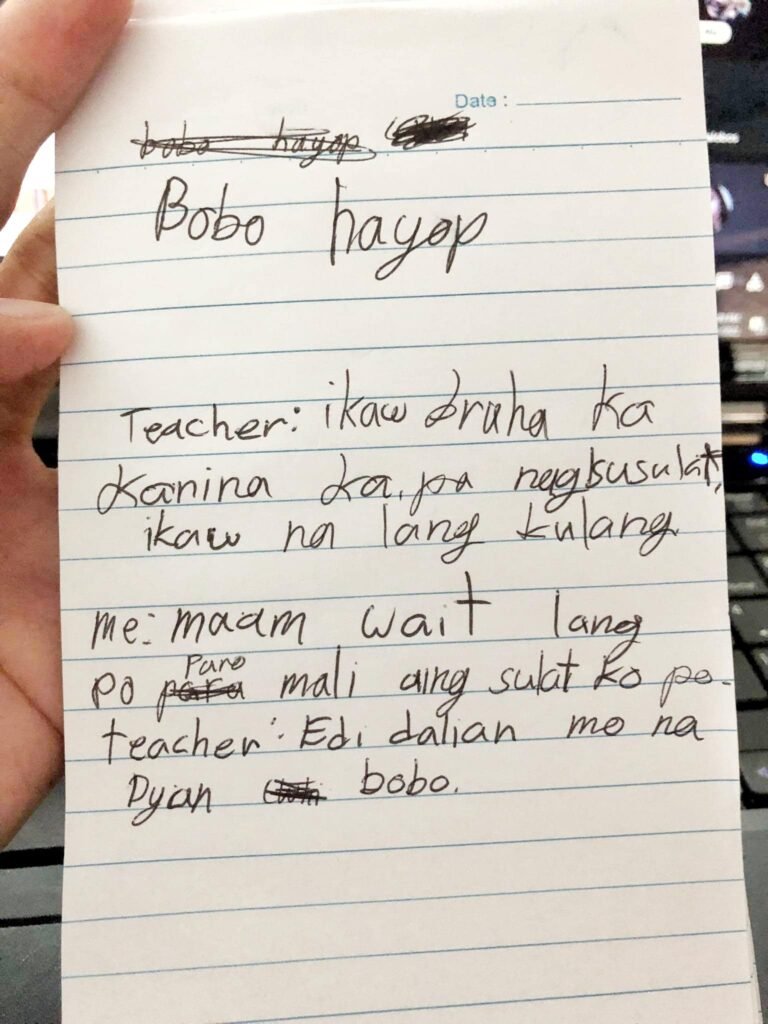 Date :
bobo hayop
Bobo hayop
Teacher: ikaw bruha ka
kanina ka pa nagsusulat,
ikaw na lang kulang
me: maam wait lang
Pano
po para mali aing sulat ko po.
teacher: Edi dalian mo na
Dyan bobo.